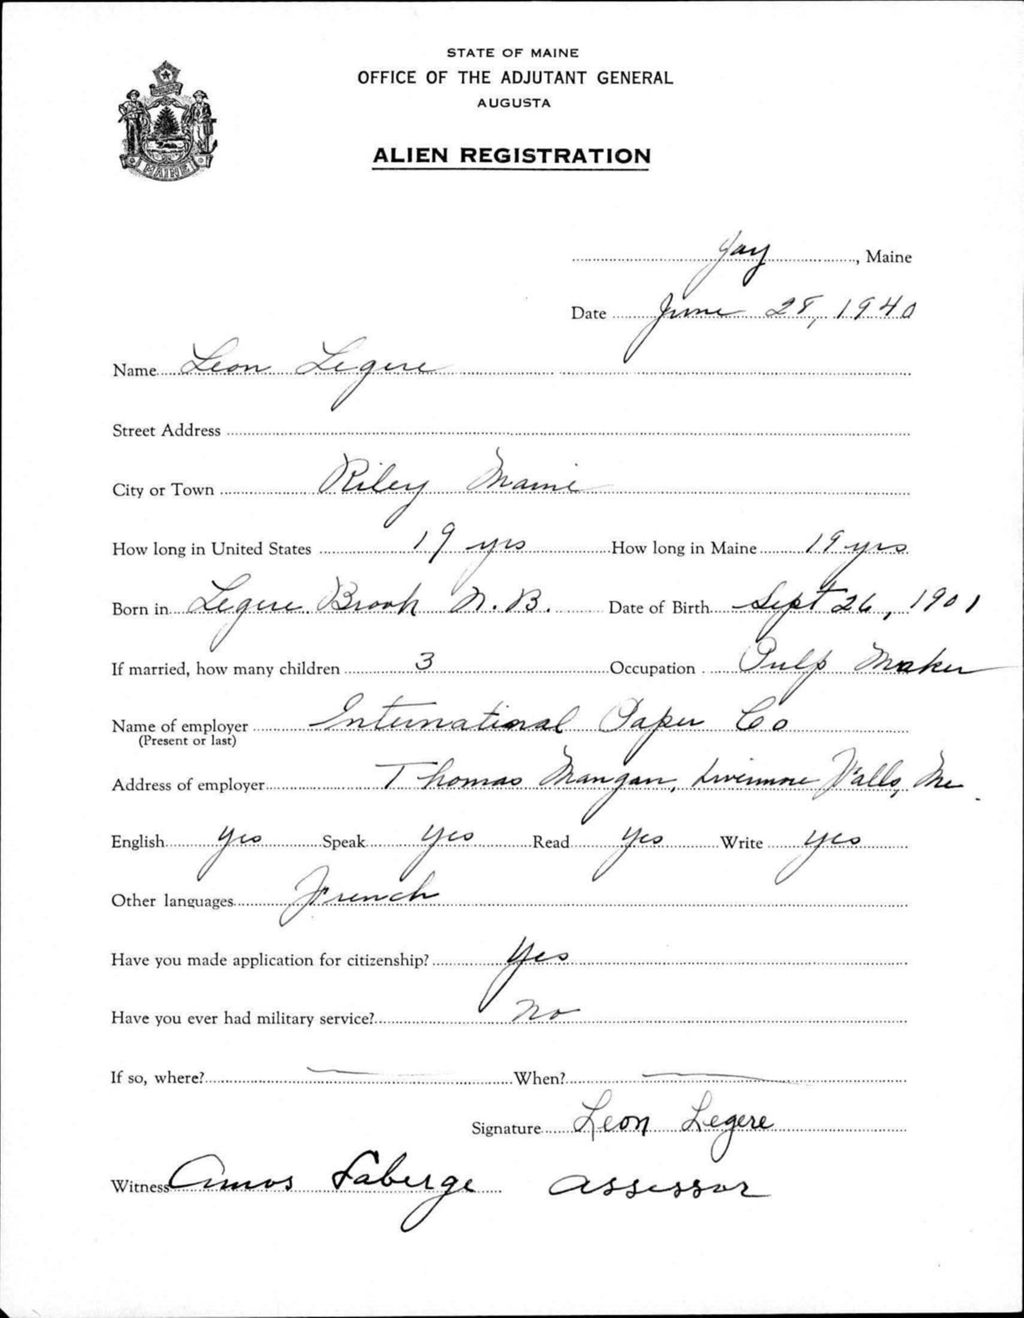 STATE OF MAINE
OFFICE OF THE ADJUTANT GENERAL
AUGUSTA
ALIEN REGISTRATION
MAINE
Jay, Maine
Date June 28, 1940
Name Leon Legere
Street Address
City or Town Riley Maine
How long in United States 19 yrs How long in Maine 19 yrs
Born in Legere Brook N.B. Date of Birth Sept 26, 1901
If married, how many children 3 Occupation Pulp Maker
Name of employer International Paper Co
(Present or last)
Address of employer Thomas Mangan, Livermore Falls, Me.
English yes Speak yes Read yes Write yes
Other languages French
Have you made application for citizenship? Yes
Have you ever had military service? no
If so, where? When?
Signature Leon Legere
Witness Amos Laberge assessor